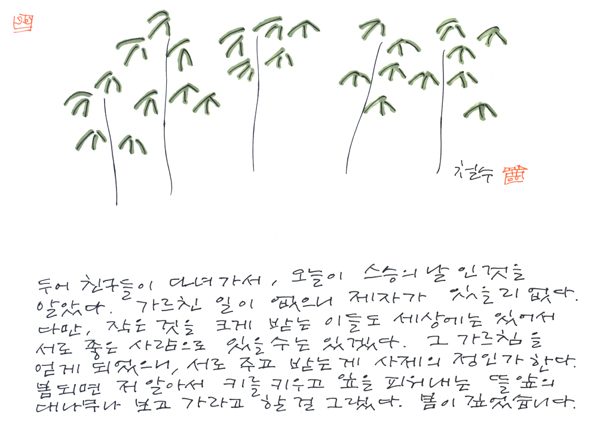 철수
두어 친구들이 다녀가서, 오늘이 스승의 날 인것을
알았다. 가르친 일이 없으니 제자가 있을리 없다.
다만, 작은 것을 크게 받는 이들도 세상에는 있어서
서로 좋은 사람으로 있을수는 있겠다. 그 가르침을
얻게 되었으니, 서로 주고 받는게 사제의 정인가 한다.
봄되면 저 알아서 키를 키우고 잎을 피워내는 뜰앞의
대나무나 보고 가라고 할 걸 그랬다. 봄이 깊었습니다.